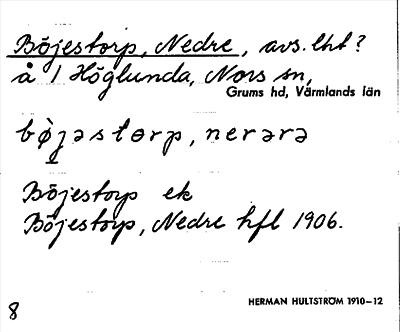 Böjestorp, Nedre, avs. lht?
å 1 Höglunda, Nors sn,
Grums hd, Värmlands län
bø̀jəstɵrp, nerərə
Böjestorp ek
Böjestorp, Nedre hfl 1906.
HERMAN HULTSTRÖM 1910–12
8